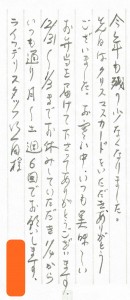 今年も残り少なくなりました。
先日はクリスマスカードをいただきありがとう
ございました。お言い中、いつも美味しい
お弁当を届けて下さりありがとうございます。
12/31〜1/3までお休みしていただき1/4から
いつも通り月〜土週6回でお願いします。
ライフデリスタッフ御一同様